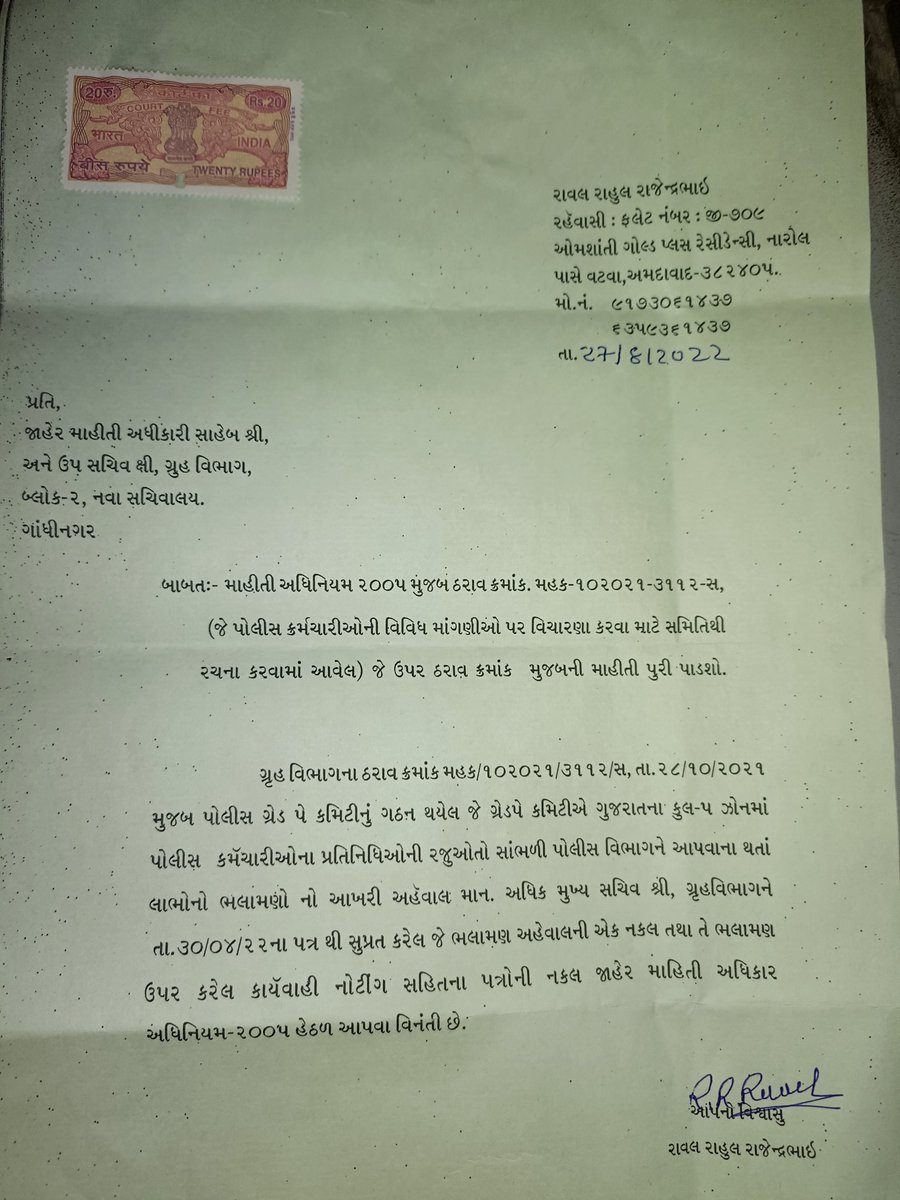 20रु.
कोर्ट फीस
Rs.20
COURT FEE
भारत
INDIA
बीस रुपये
TWENTY RUPEES
રાવલ રાહુલ રાજેન્દ્રભાઇ
રહેવાસી : ફલેટ નંબર : જી-૭૦૯
ઓમશાંતી ગોલ્ડ પ્લસ રેસીડેન્સી, નારોલ
પાસે વટવા,અમદાવાદ-૩૮૨૪૦૫.
મો.નં. ૯૧૭૩૦૬૧૪૩૭
૬૩૫૯૩૬૧૪૩૭
તા.૨૭/8/2022
પ્રતિ,
જાહેર માહીતી અધીકારી સાહેબ શ્રી,
અને ઉપ સચિવ ક્ષી, ગ્રુહ વિભાગ,
બ્લોક-૨, નવા સચિવાલય.
ગાંધીનગર
બાબતઃ- માહીતી અધિનિયમ ૨૦૦૫ મુજબ ઠરાવ ક્રમાંક. મહક-૧૦૨૦૨૧-૩૧૧૨-સ,
(જે પોલીસ કર્મચારીઓની વિવિધ માંગણીઓ પર વિચારણા કરવા માટે સમિતિથી
રચના કરવામાં આવેલ) જે ઉપર ઠરાવ ક્રમાંક મુજબની માહીતી પુરી પાડશો.
ગ્રૃહ વિભાગના ઠરાવ ક્રમાંક મહક/૧૦૨૦૨૧/૩૧૧૨/સ, તા.૨૮/૧૦/૨૦૨૧
મુજબ પોલીસ ગ્રેડ પે કમિટીનું ગઠન થયેલ જે ગ્રેડપે કમિટીએ ગુજરાતના કુલ-૫ ઝોનમાં
પોલીસ કર્મચારીઓના પ્રતિનિધિઓની રજુઓતો સાંભળી પોલીસ વિભાગને આપવાના થતાં
લાભોનો ભલામણો નો આખરી અહેવાલ માન. અધિક મુખ્ય સચિવ શ્રી, ગ્રૃહવિભાગને
તા.૩૦/૦૪/૨૨ના પત્ર થી સુપ્રત કરેલ જે ભલામણ અહેવાલની એક નકલ તથા તે ભલામણ
ઉપર કરેલ કાર્યવાહી નોટીંગ સહિતના પત્રોની નકલ જાહેર માહિતી અધિકાર
અધિનિયમ-૨૦૦૫ હેઠળ આપવા વિનંતી છે.
R.R.Raval
આપનો વિશ્વાસુ
રાવલ રાહુલ રાજેન્દ્રભાઇ